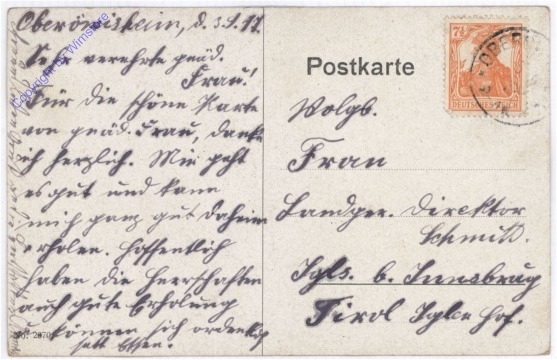 Oberöwisheim, d. 3.9.17.
Sehr verehrte gnäd.
Frau!
Für die schöne Karte
von gnäd. Frau, danke
ich herzlich. Mir geht
es gut und kann
mich ganz gut daheim
erholen. Hoffentlich
haben die Herrschaften
auch gute Erholung
u. können sich ordentlich
satt Essen.
Copyright by Wimstore
No. 2070
Postkarte
7½
DEUTSCHES REICH
Wolgb.
Frau
Landger. Direktor
Schmitt.
Igls. b. Innsbrug
Tirol Igler Hof.